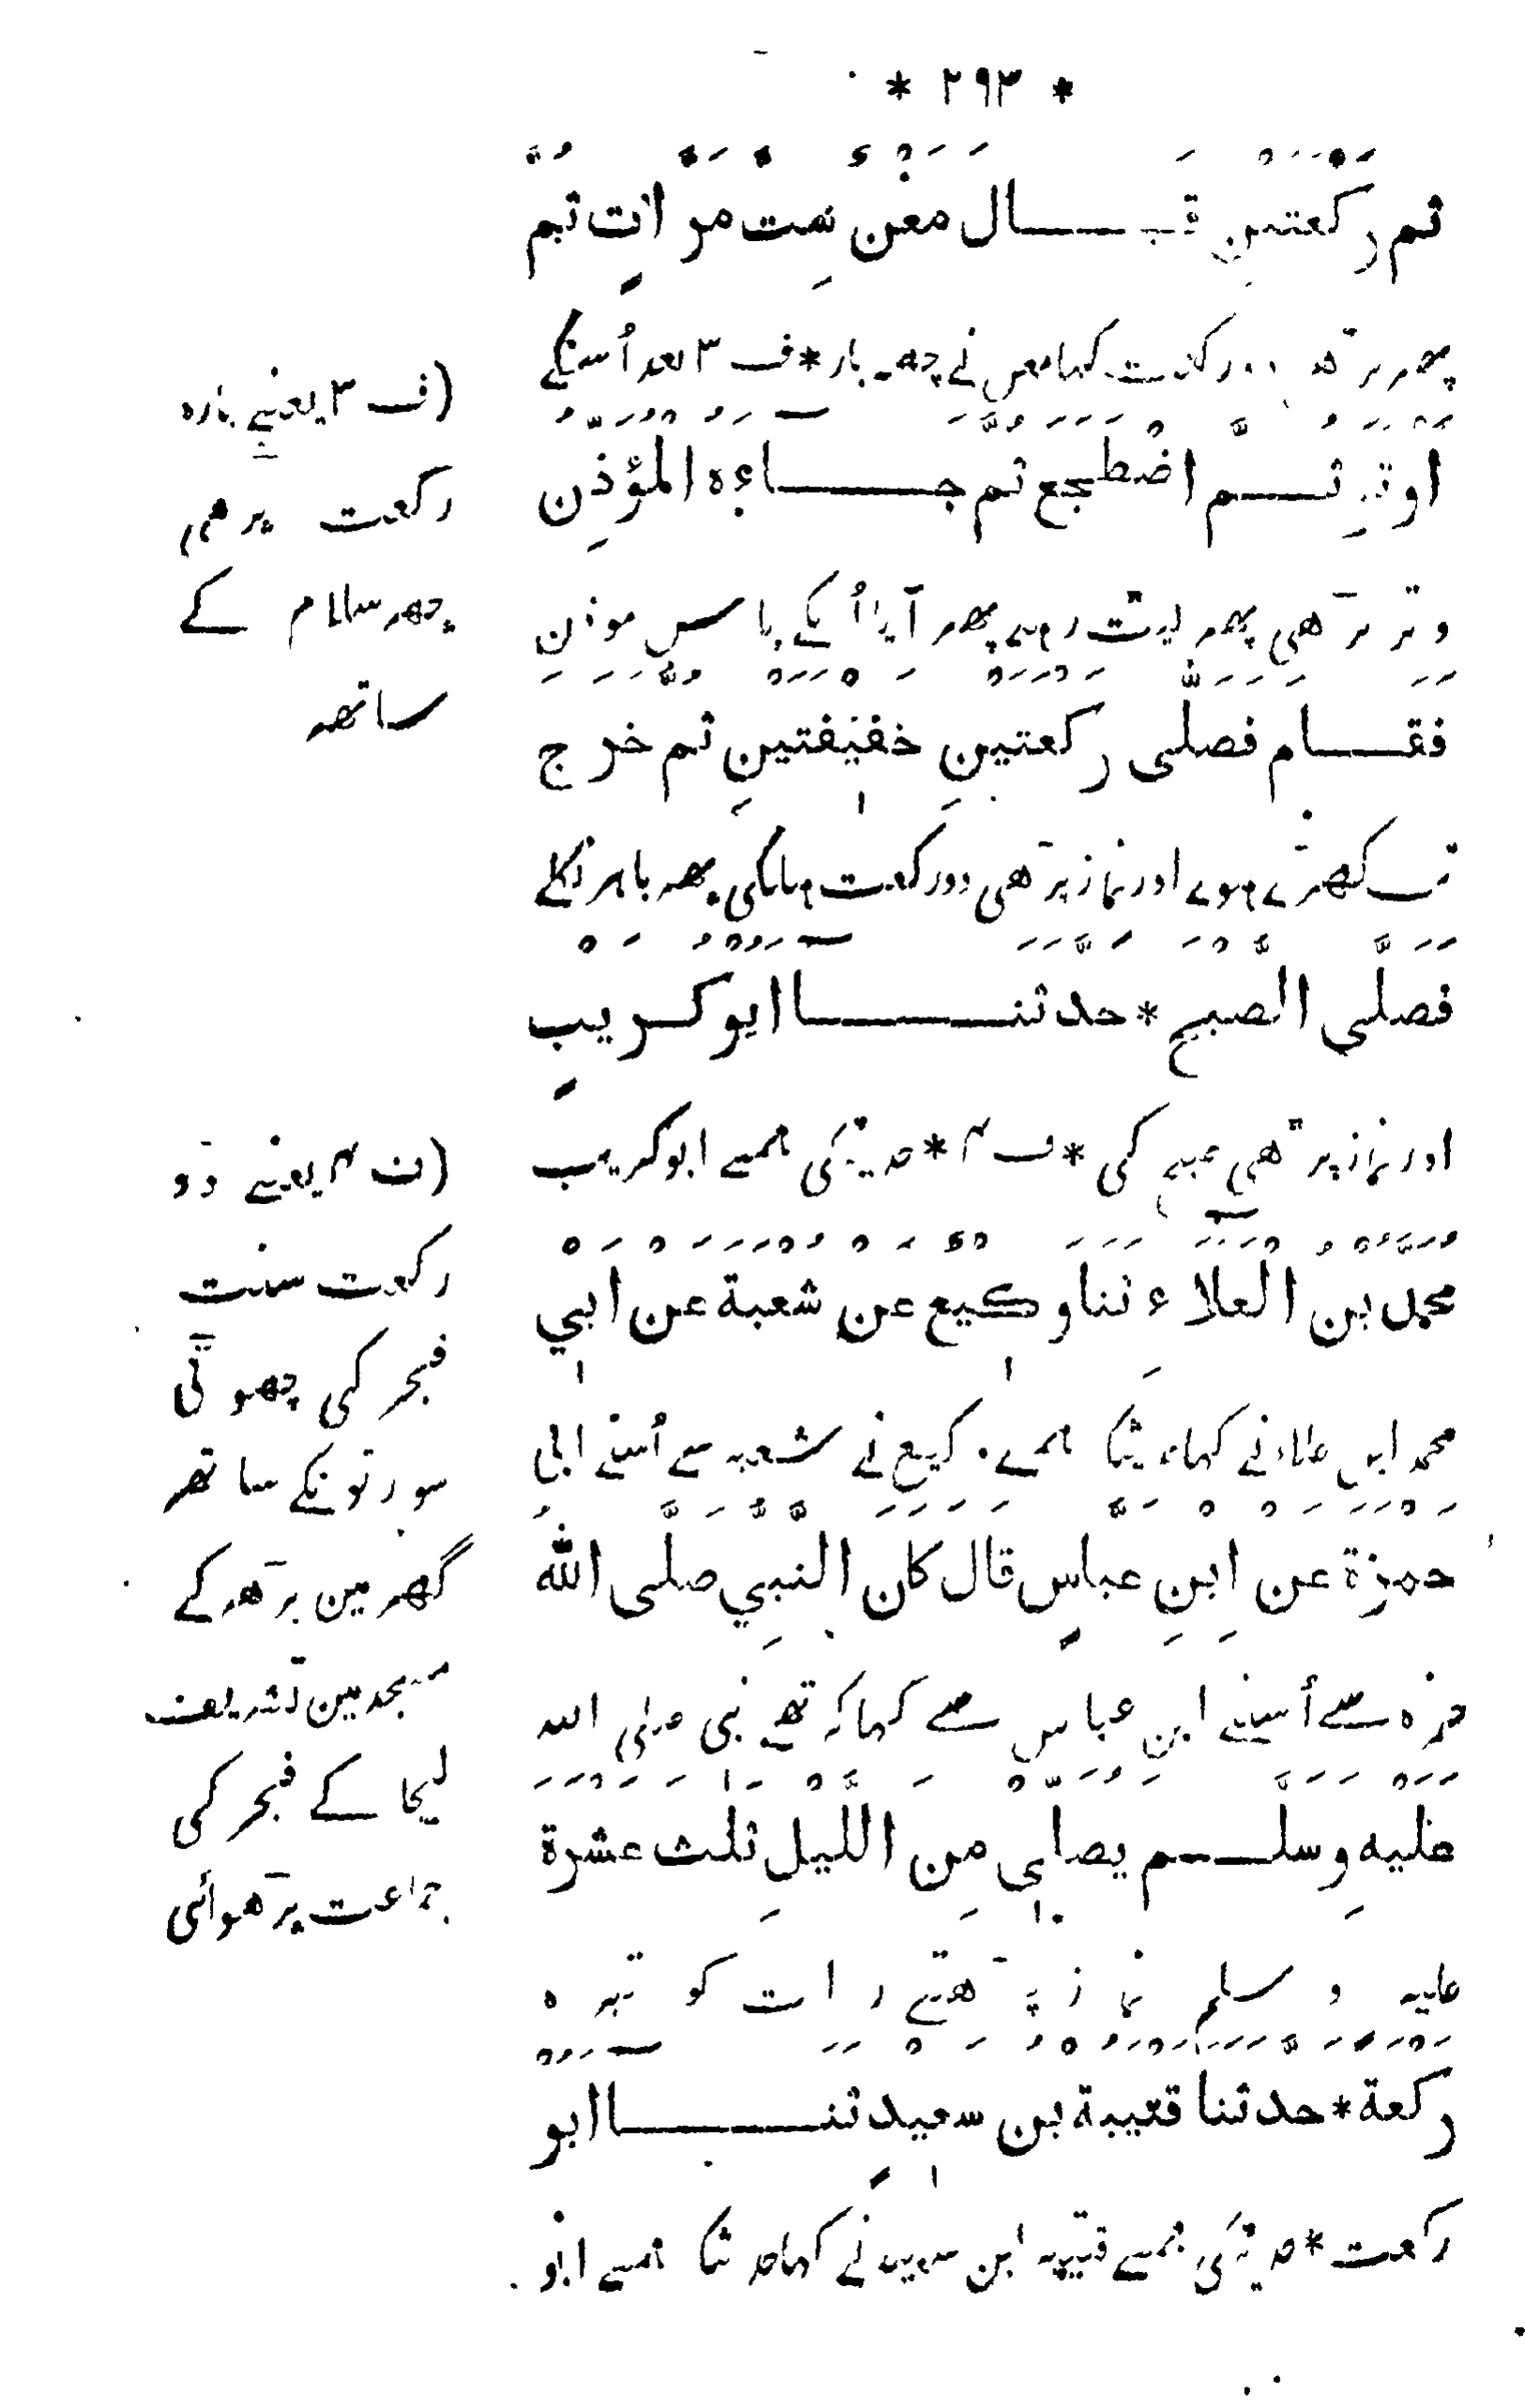 * ٢٩٣ *
ثم ركعتين قــال معن ست مرات ثم
پھر پڑھ دو رکعت کہا معن نے چھہ بار * ف ٣ بعد اُسکے
اوتر ثــم اضطجع ثم جــاءه المؤذن
وتر پڑھی پھر لیٹ رہے پھر آیا اُنکے پاس موذن
فقــام فصلى ركعتينِ خفيفتينِ ثم خرج
تب کھڑے ہوے اور نماز پڑھی دو رکعت ہلکی پھر باہر نکلے
فصلَّى الصبح * حدثنــا ابو كريبٍ
اور نماز پڑھی صبح کی * ف ٤ * حدیث کی ہمسے ابو کریب
محمد بن العلاء ثنا وكيع عن شعبة عن ابي
محمد ابن علاء نے کہا حدیث کی ہمسے وکیع نے شعبہ سے اُسنے ابی
حمزة عن ابنِ عباسٍ قال كان النبي صلى الله
حمزہ سے اُسنے ابن عباس سے کہا کہ تھے نبی صلی اللہ
عليه وسلــم يصلي من الليل ثلث عشرة
علیہ و سلم نماز پڑھتے رات کو تیرہ
ركعة * حدثنا قتيبة بن سعيدٍ ثنــا ابو
رکعت * حدیث کی ہمسے قتیبہ ابن سعید نے کہا حدیث کی ہمسے ابو
(ف ٣ یعنے بارہ
رکعت پڑھی
چھہ سلام کے
ساتھہ
(ف ٤ یعنے دو
رکعت سنت
فجر کی چھوٹی
سورتونکے ساتھہ
گھر مین پڑھ کے
مسجد مین تشریف
لیجا کے فجر کی
جماعت پڑھوائی